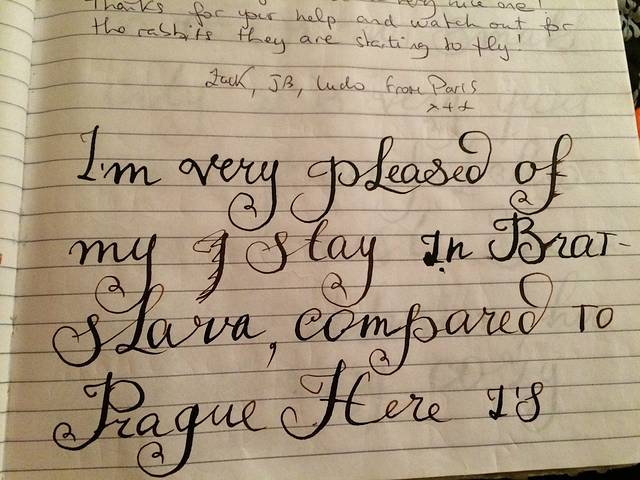 very nice one!
Thanks for your help and watch out for
the rabbits they are starting to fly!
Zack, JB, Ludo from Paris
I'm very pleased of
my stay in Brat-
slava, compared to
Prague Here is